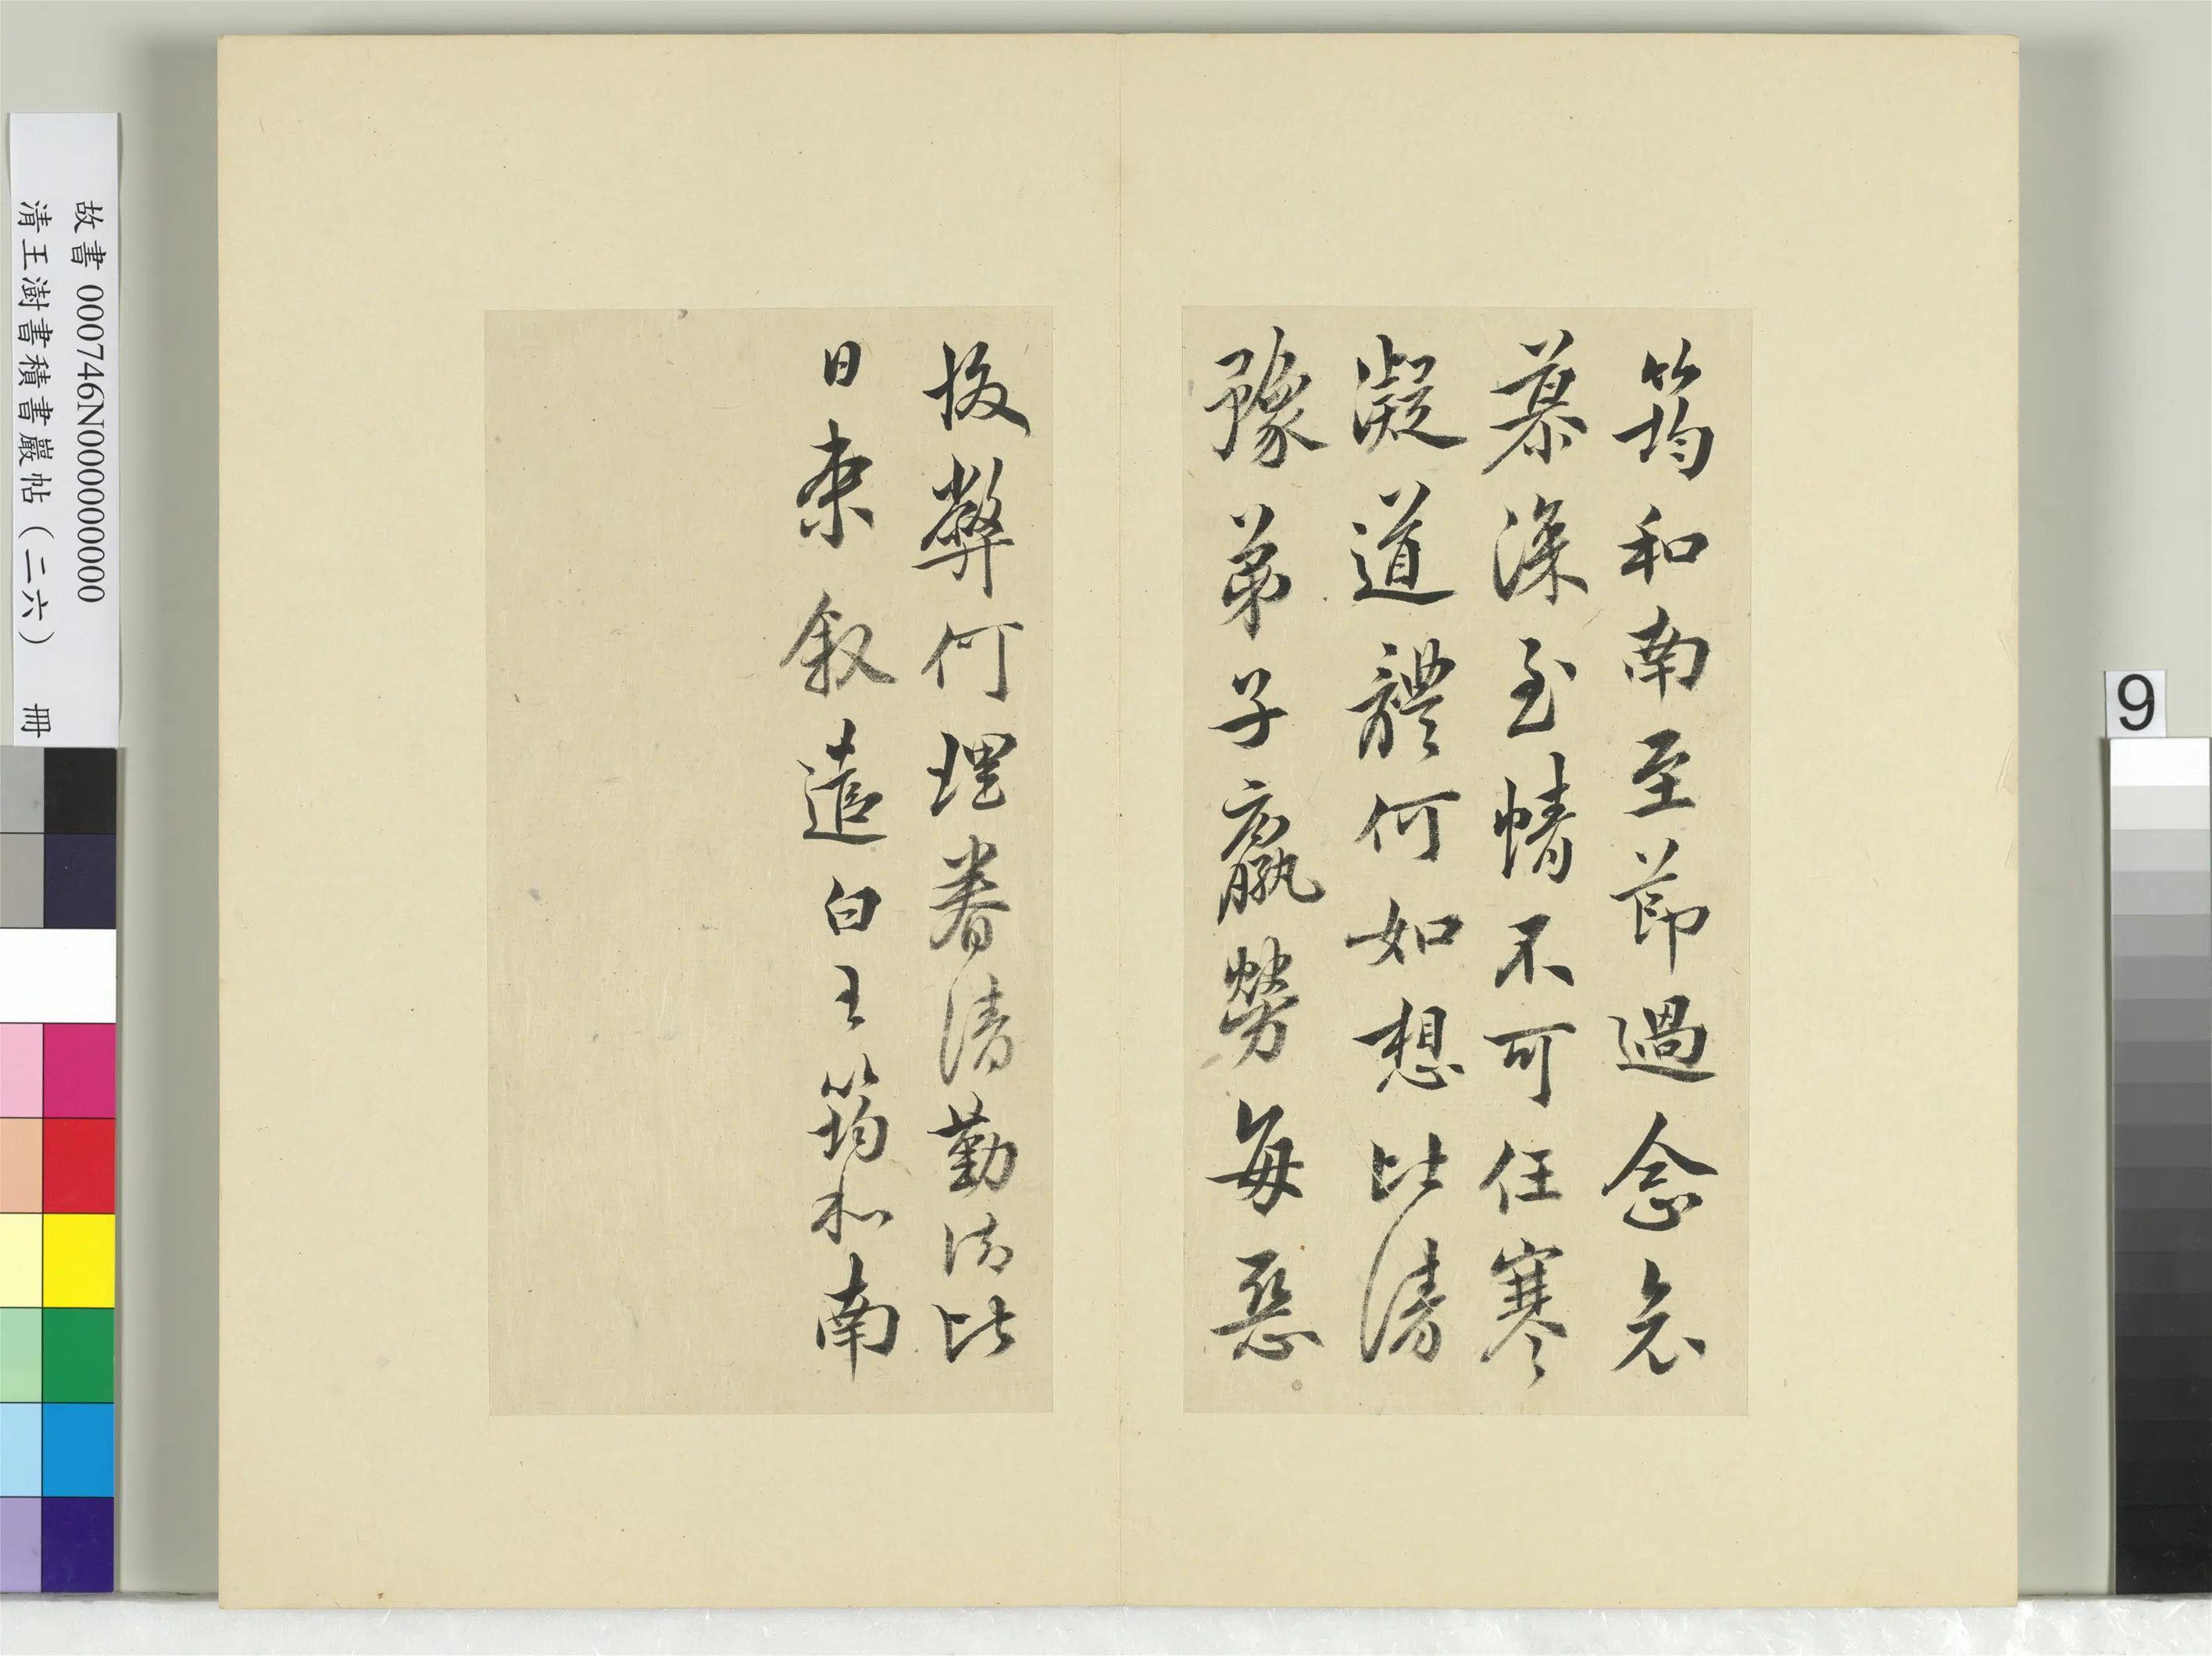 筠和南至節過念哀
慕深至情不可任寒
凝道體何如想比清
豫弟子羸勞每惡
投弊何理眷清勤法比
日來敘遣白王筠和南
故書 000746N000000000
清王澍書積書巖帖（二六） 冊
9